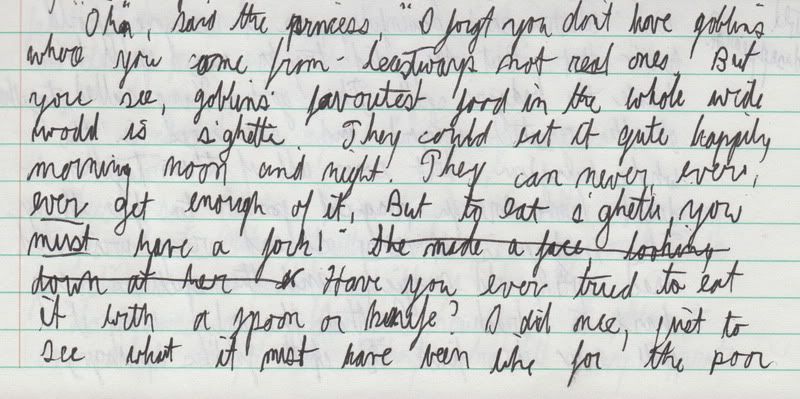 "Oha", said the princess, "I forgt you don't have goblins
where you come from - leastways not real ones. But
you see, goblins' favoutest food in the whole wide
world is s'ghetti. They could eat it quite happily
morning noon and night. They can never, ever,
ever get enough of it, But to eat s'ghetti, you
must have a fork!" She made a face, looking
down at her Have you ever tried to eat
it with a spoon or knife? I did once, just to
see what it must have been like for the poor